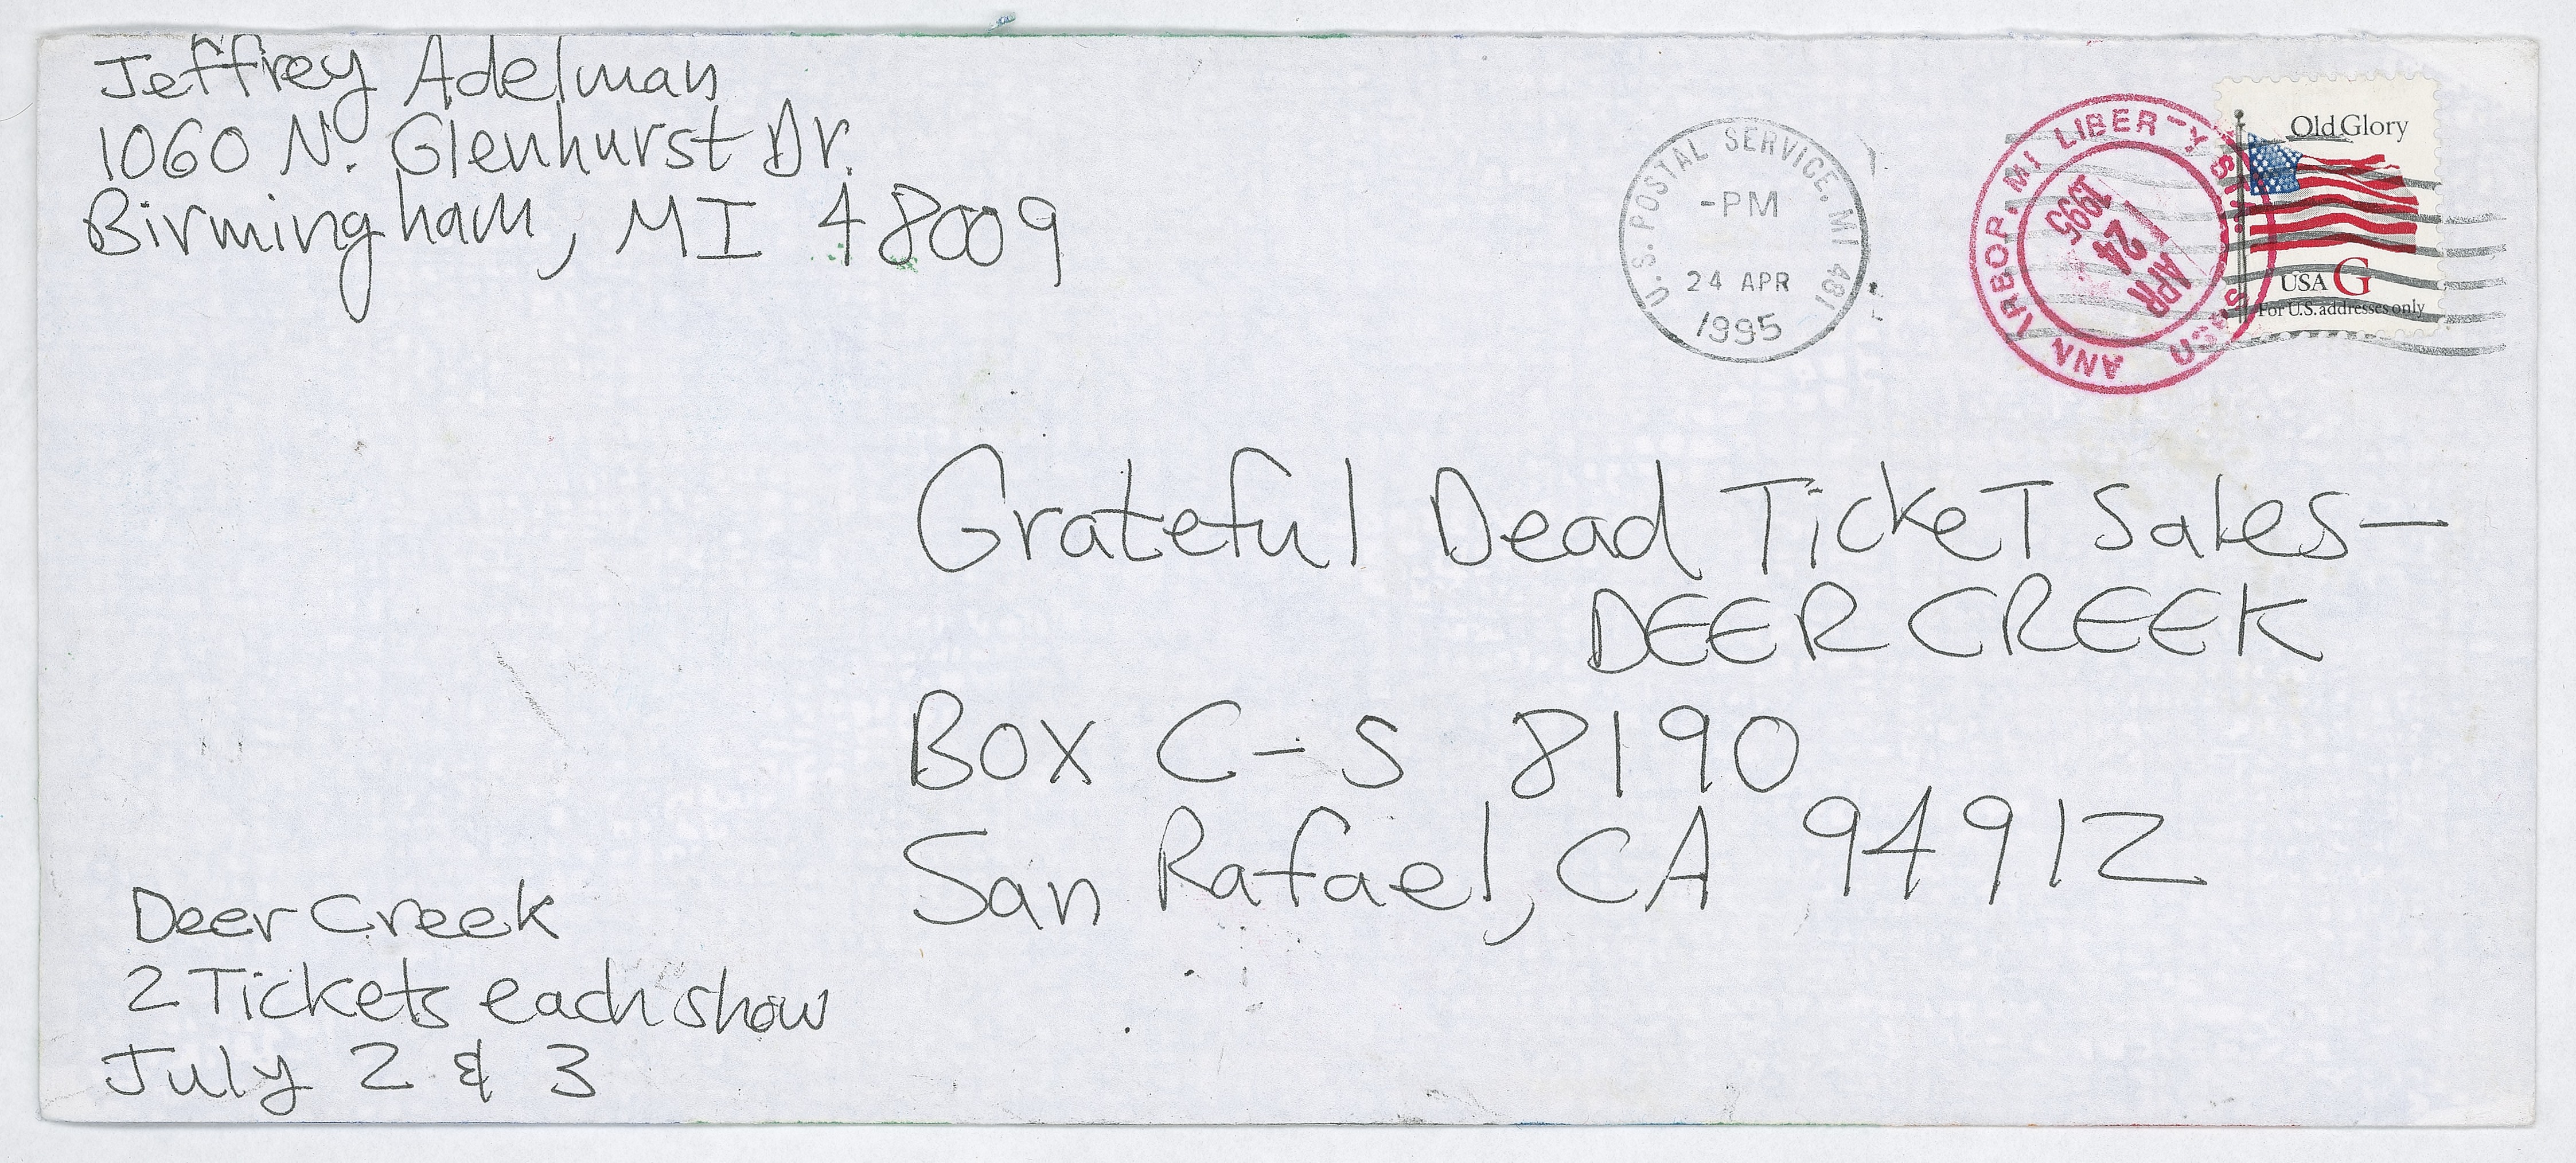 Jeffrey Adelman
1060 N. Glenhurst Dr.
Birmingham, MI 48009
U.S. POSTAL SERVICE, MI 481
-PM
24 APR
1995
ANN ARBOR, MI LIBERTY STA.
APR
24
1995
Old Glory
USA G
For U.S. addresses only
Grateful Dead TickeT Sales—
DEER CREEK
BOX C-S 8190
San Rafael, CA 94912
Deer Creek
2 Tickets each show
July 2 & 3